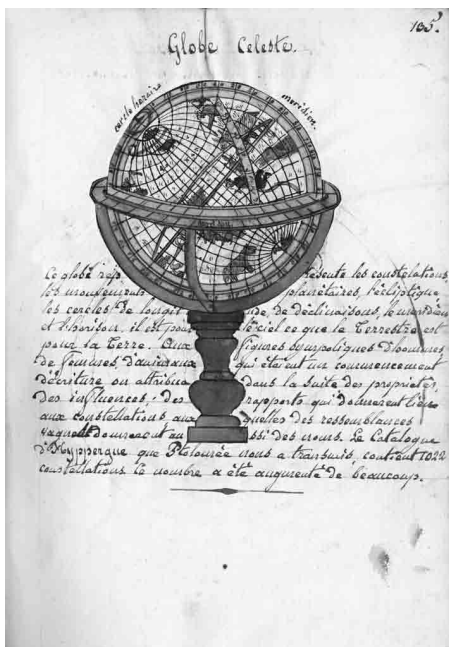 135.
Globe Celeste.
cercle horaire
meridien.
Ce globe représente les constélations,
les mouvemens planétaires, l'écliptique
les cercles de longitude, de déclinaisons, le meridien
et l'horison, il est pour le ciel ce que le Terrestre est
pour la Terre. Aux figures symboliques d'hommes,
de femmes, d'animaux qui étaient un commencement
décriture on attribua dans la suite des proprietés,
des influences, des rapports qui donnerent lieu
aux constellations auxquelles des ressemblances
vagues donnerent aussi des noms. Le Catalogue
d'Hyppergue que Ptolomée nous a transmis, contient 1022
constellations le nombre a été augmenté de beaucoup.